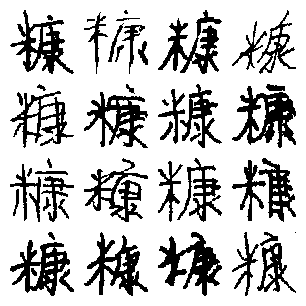 糠糠糠糠
糠糠糠糠
糠糠糠糠
糠糠糠糠